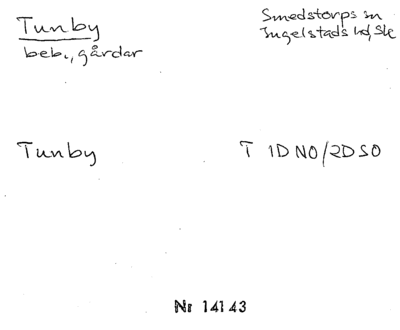 Tunby
beb., gårdar
Smedstorps sn
Ingelstads hd, Sk
Tunby
T 1D NO/2D SO
Nr 14143